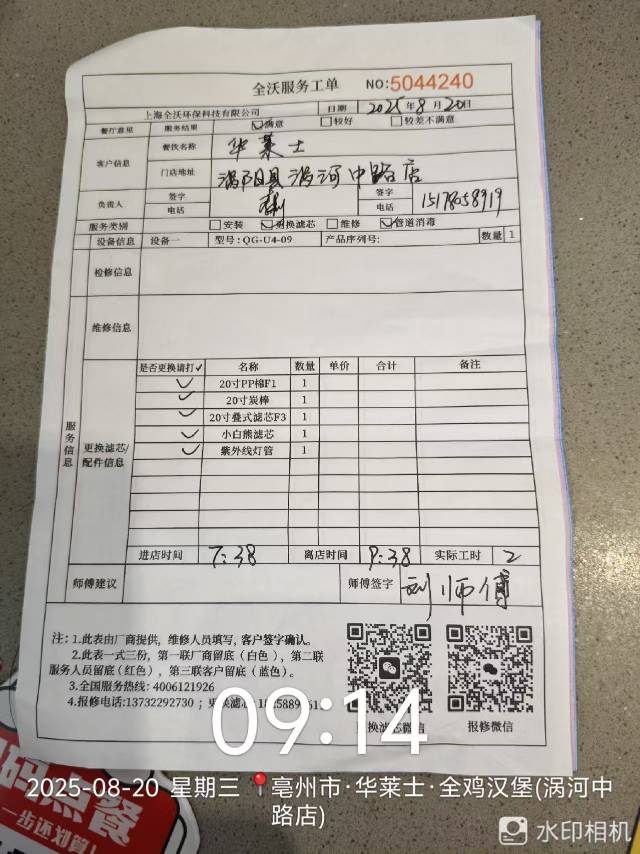 全沃服务工单 NO:5044240
上海全沃环保科技有限公司 日期 2025年8月20日
餐厅意见 服务结果 ☑满意 □较好 □较差不满意
客户信息 餐饮名称 华莱士
门店地址 涡阳县涡河中路店
负责人 签字 签字
电话 电话 15178058919
服务类别 □安装 ☑更换滤芯 □维修 ☑管道消毒
设备信息 设备一 型号:QG-U4-09 产品序列号: 数量 1
检修信息
维修信息
服务信息
更换滤芯/配件信息
是否更换请打✓ 名称 数量 单价 合计 备注
✓ 20寸PP棉F1 1
✓ 20寸炭棒 1
✓ 20寸叠式滤芯F3 1
✓ 小白熊滤芯 1
✓ 紫外线灯管 1
进店时间 7:38 离店时间 9:38 实际工时 2
师傅建议 师傅签字 刘师傅
注:1.此表由厂商提供,维修人员填写,客户签字确认。
2.此表一式三份,第一联厂商留底(白色),第二联
服务人员留底(红色),第三联客户留底(蓝色)。
3.全国服务热线:4006121926
4.报修电话:13732292730;更换滤芯
换滤芯微信 报修微信
09:14
2025-08-20 星期三 亳州市·华莱士·全鸡汉堡(涡河中
路店)
水印相机
码点餐
一步还划算!